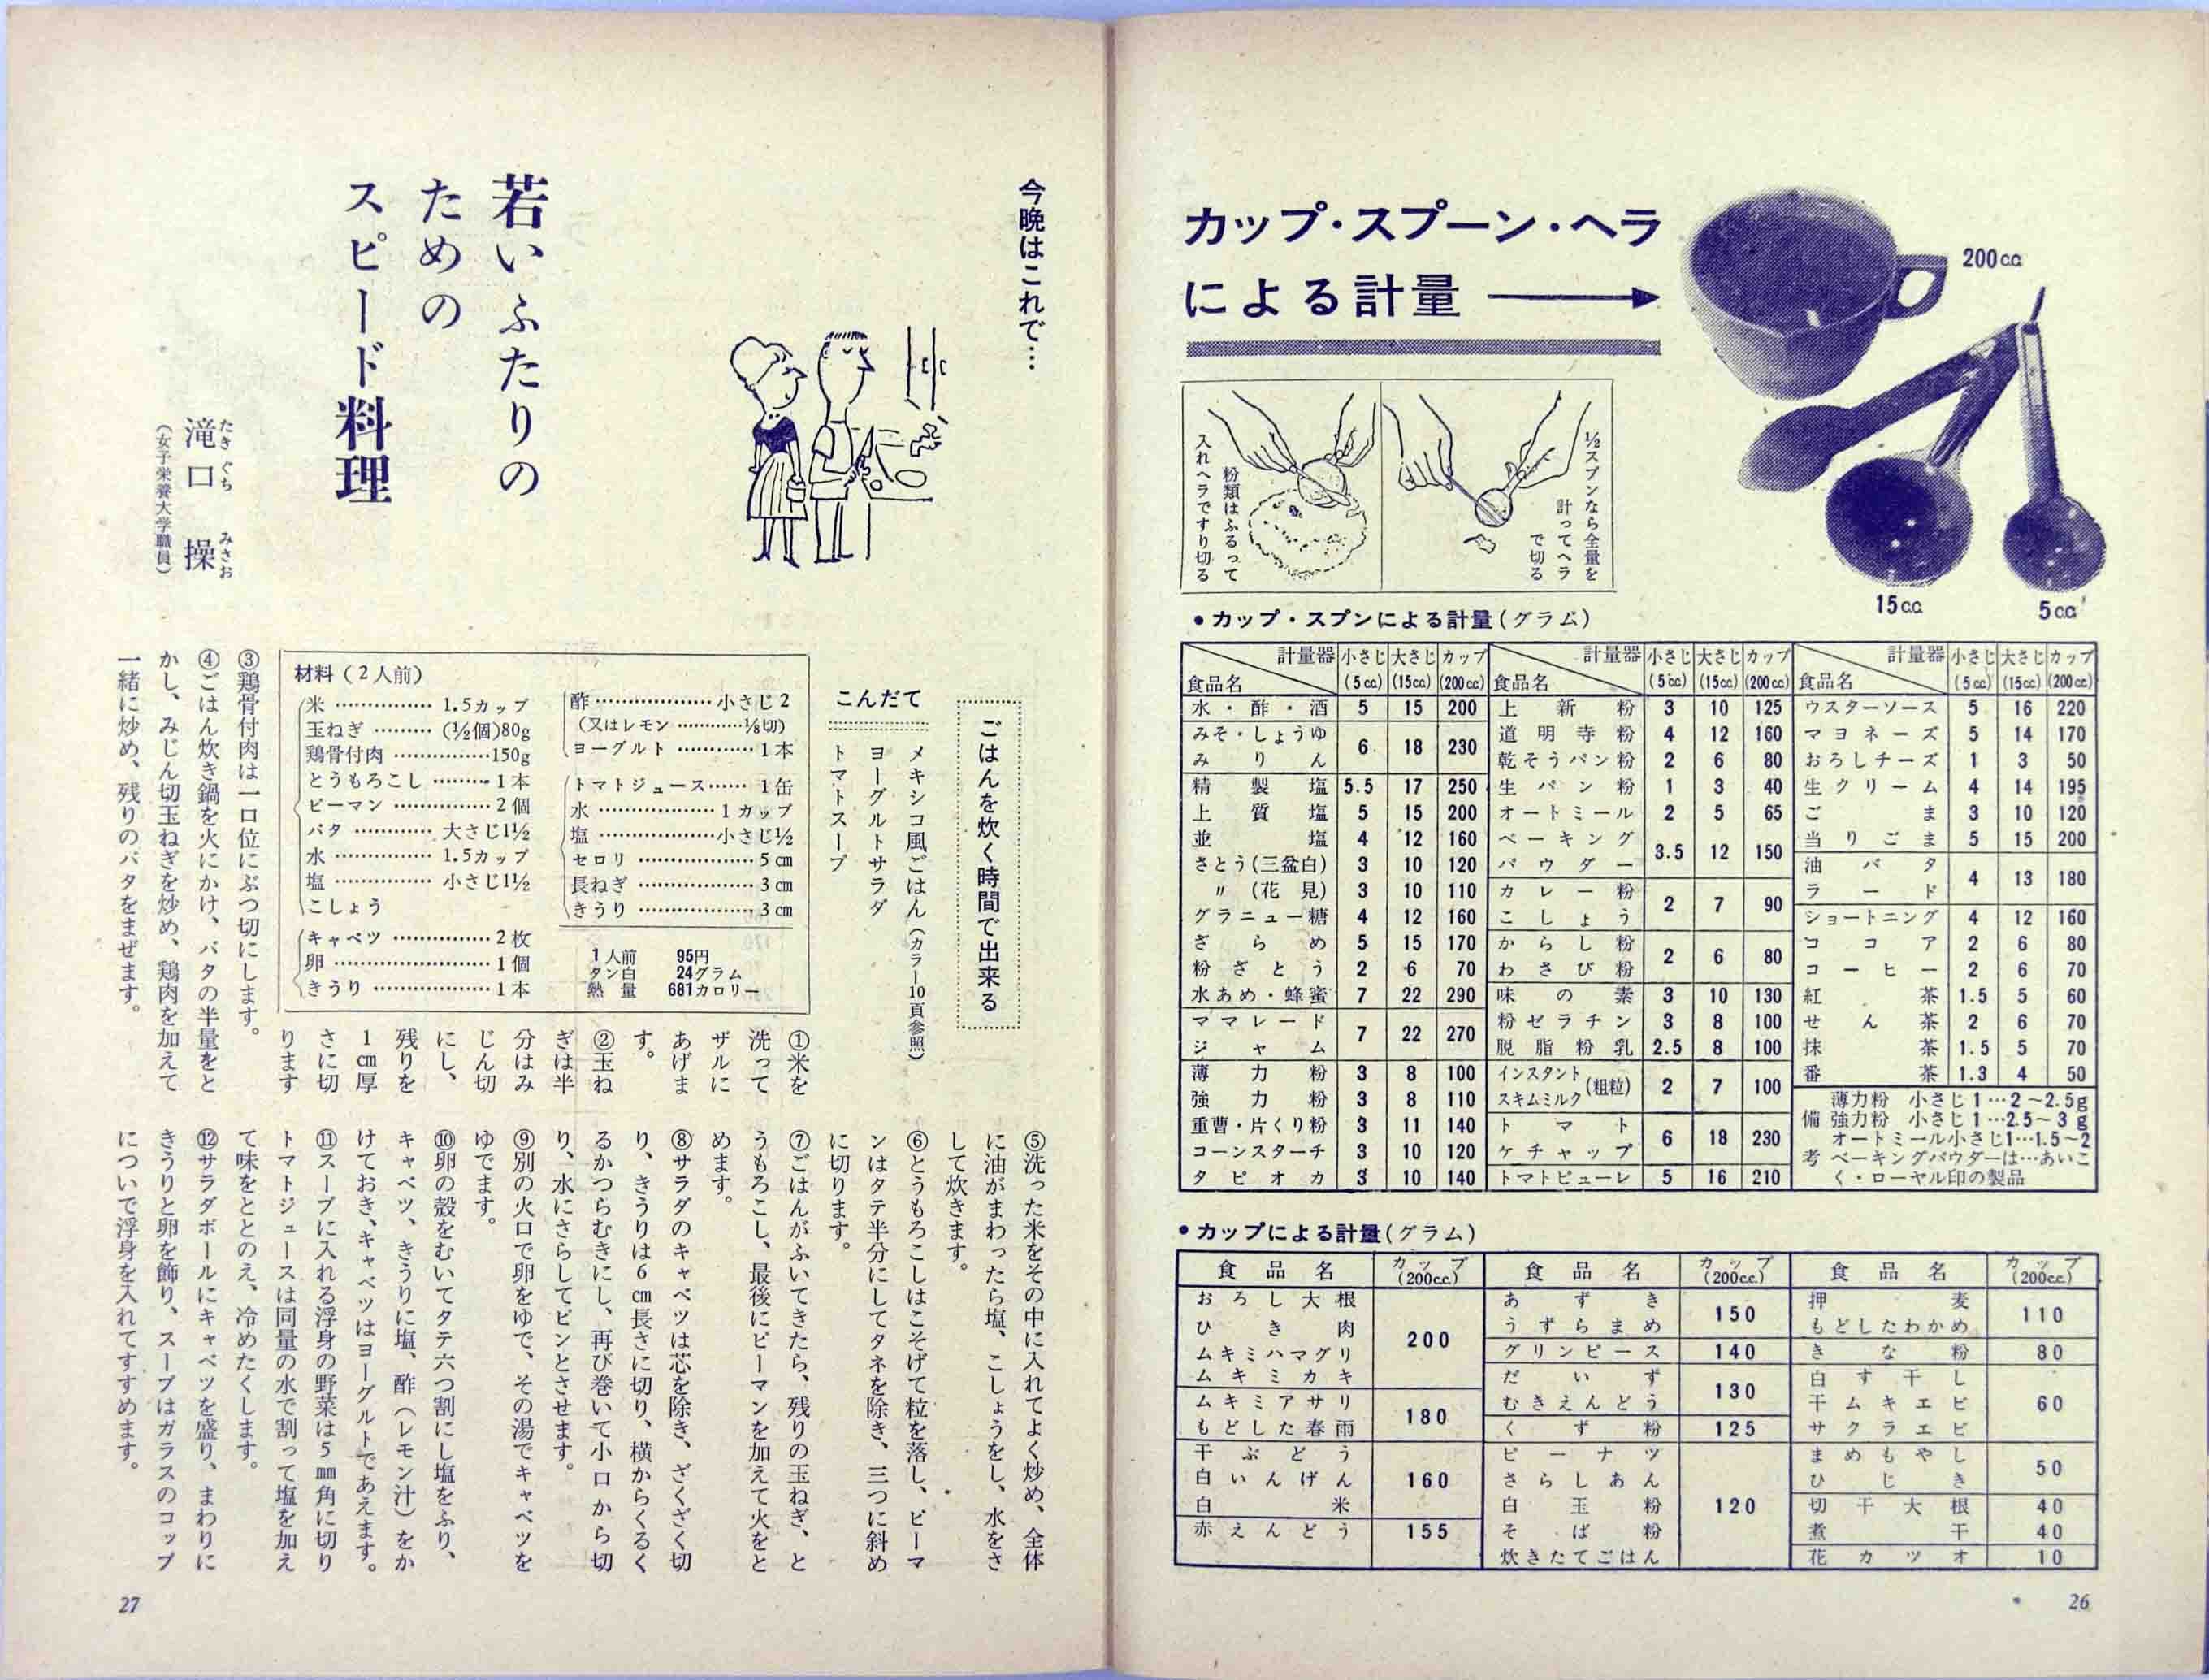 カップ・スプーン・ヘラ
による計量
200cc
15cc
5cc
½スプンなら全量を
計ってヘラ
で切る
粉類はふるって
入れヘラですり切る
●カップ・スプンによる計量(グラム)
計量器 食品名 小さじ(5cc) 大さじ(15cc) カップ(200cc)
水・酢・酒 5 15 200
みそ・しょうゆ
みりん 6 18 230
精製塩 5.5 17 250
上質塩 5 15 200
並塩 4 12 160
さとう(三盆白) 3 10 120
〃(花見) 3 10 110
グラニュー糖 4 12 160
ざらめ 5 15 170
粉ざとう 2 6 70
水あめ・蜂蜜 7 22 290
ママレード
ジャム 7 22 270
薄力粉 3 8 100
強力粉 3 8 110
重曹・片くり粉 3 11 140
コーンスターチ 3 10 120
タピオカ 3 10 140
計量器 食品名 小さじ(5cc) 大さじ(15cc) カップ(200cc)
上新粉 3 10 125
道明寺粉 4 12 160
乾そうパン粉 2 6 80
生パン粉 1 3 40
オートミール 2 5 65
ベーキング
パウダー 3.5 12 150
カレー粉
こしょう 2 7 90
からし粉
わさび粉 2 6 80
味の素 3 10 130
粉ゼラチン 3 8 100
脱脂粉乳 2.5 8 100
インスタント
スキムミルク(粗粒) 2 7 100
トマト
ケチャップ 6 18 230
トマトピューレ 5 16 210
計量器 食品名 小さじ(5cc) 大さじ(15cc) カップ(200cc)
ウスターソース 5 16 220
マヨネーズ 5 14 170
おろしチーズ 1 3 50
生クリーム 4 14 195
ごま 3 10 120
当りごま 5 15 200
油バタ
ラード 4 13 180
ショートニング 4 12 160
ココア 2 6 80
コーヒー 2 6 70
紅茶 1.5 5 60
せん茶 2 6 70
抹茶 1.5 5 70
番茶 1.3 4 50
備考
薄力粉 小さじ1…2～2.5g
強力粉 小さじ1…2.5～3g
オートミール小さじ1…1.5～2
ベーキングパウダーは…あいこ
く・ローヤル印の製品
●カップによる計量(グラム)
食品名 カップ(200cc.)
おろし大根
ひき肉
ムキミハマグリ
ムキミカキ 200
ムキミアサリ
もどした春雨 180
干ぶどう
白いんげん
白米 160
赤えんどう 155
食品名 カップ(200cc.)
あずき
うずらまめ 150
グリンピース 140
だいず
むきえんどう 130
くず粉 125
ピーナツ
さらしあん
白玉粉
そば粉
炊きたてごはん 120
食品名 カップ(200cc.)
押麦
もどしたわかめ 110
きな粉 80
白す干し
干ムキエビ
サクラエビ 60
まめもやし
ひじき 50
切干大根 40
煮干 40
花カツオ 10
26
今晩はこれで…
若いふたりの
ための
スピード料理
滝口 操
たきぐち みさお
(女子栄養大学職員)
ごはんを炊く時間で出来る
こんだて
メキシコ風ごはん(カラー10頁参照)
ヨーグルトサラダ
トマトスープ
材料(2人前)
米……………1.5カップ
玉ねぎ………(½個)80g
鶏骨付肉……………150g
とうもろこし………1本
ピーマン……………2個
バタ…………大さじ1½
水……………1.5カップ
塩……………小さじ1½
こしょう
キャベツ……………2枚
卵……………………1個
きうり………………1本
酢………………小さじ2
(又はレモン………⅛切)
ヨーグルト…………1本
トマトジュース……1缶
水………………1カップ
塩………………小さじ½
セロリ………………5cm
長ねぎ………………3cm
きうり………………3cm
1人前 95円
タン白 24グラム
熱量 681カロリー
①米を
洗って
ザルに
あげま
す。
②玉ね
ぎは半
分はみ
じん切
にし、
残りを
1cm厚
さに切
ります
③鶏骨付肉は一口位にぶつ切にします。
④ごはん炊き鍋を火にかけ、バタの半量をと
かし、みじん切玉ねぎを炒め、鶏肉を加えて
一緒に炒め、残りのバタをまぜます。
⑤洗った米をその中に入れてよく炒め、全体
に油がまわったら塩、こしょうをし、水をさ
して炊きます。
⑥とうもろこしはこそげて粒を落し、ピーマ
ンはタテ半分にしてタネを除き、三つに斜め
に切ります。
⑦ごはんがふいてきたら、残りの玉ねぎ、と
うもろこし、最後にピーマンを加えて火をと
めます。
⑧サラダのキャベツは芯を除き、ざくざく切
り、きうりは6cm長さに切り、横からくるく
るかつらむきにし、再び巻いて小口から切
り、水にさらしてピンとさせます。
⑨別の火口で卵をゆで、その湯でキャベツを
ゆでます。
⑩卵の殻をむいてタテ六つ割にし塩をふり、
キャベツ、きうりに塩、酢(レモン汁)をか
けておき、キャベツはヨーグルトであえます。
⑪スープに入れる浮身の野菜は5mm角に切り
トマトジュースは同量の水で割って塩を加え
て味をととのえ、冷めたくします。
⑫サラダボールにキャベツを盛り、まわりに
きうりと卵を飾り、スープはガラスのコップ
についで浮身を入れてすすめます。
27